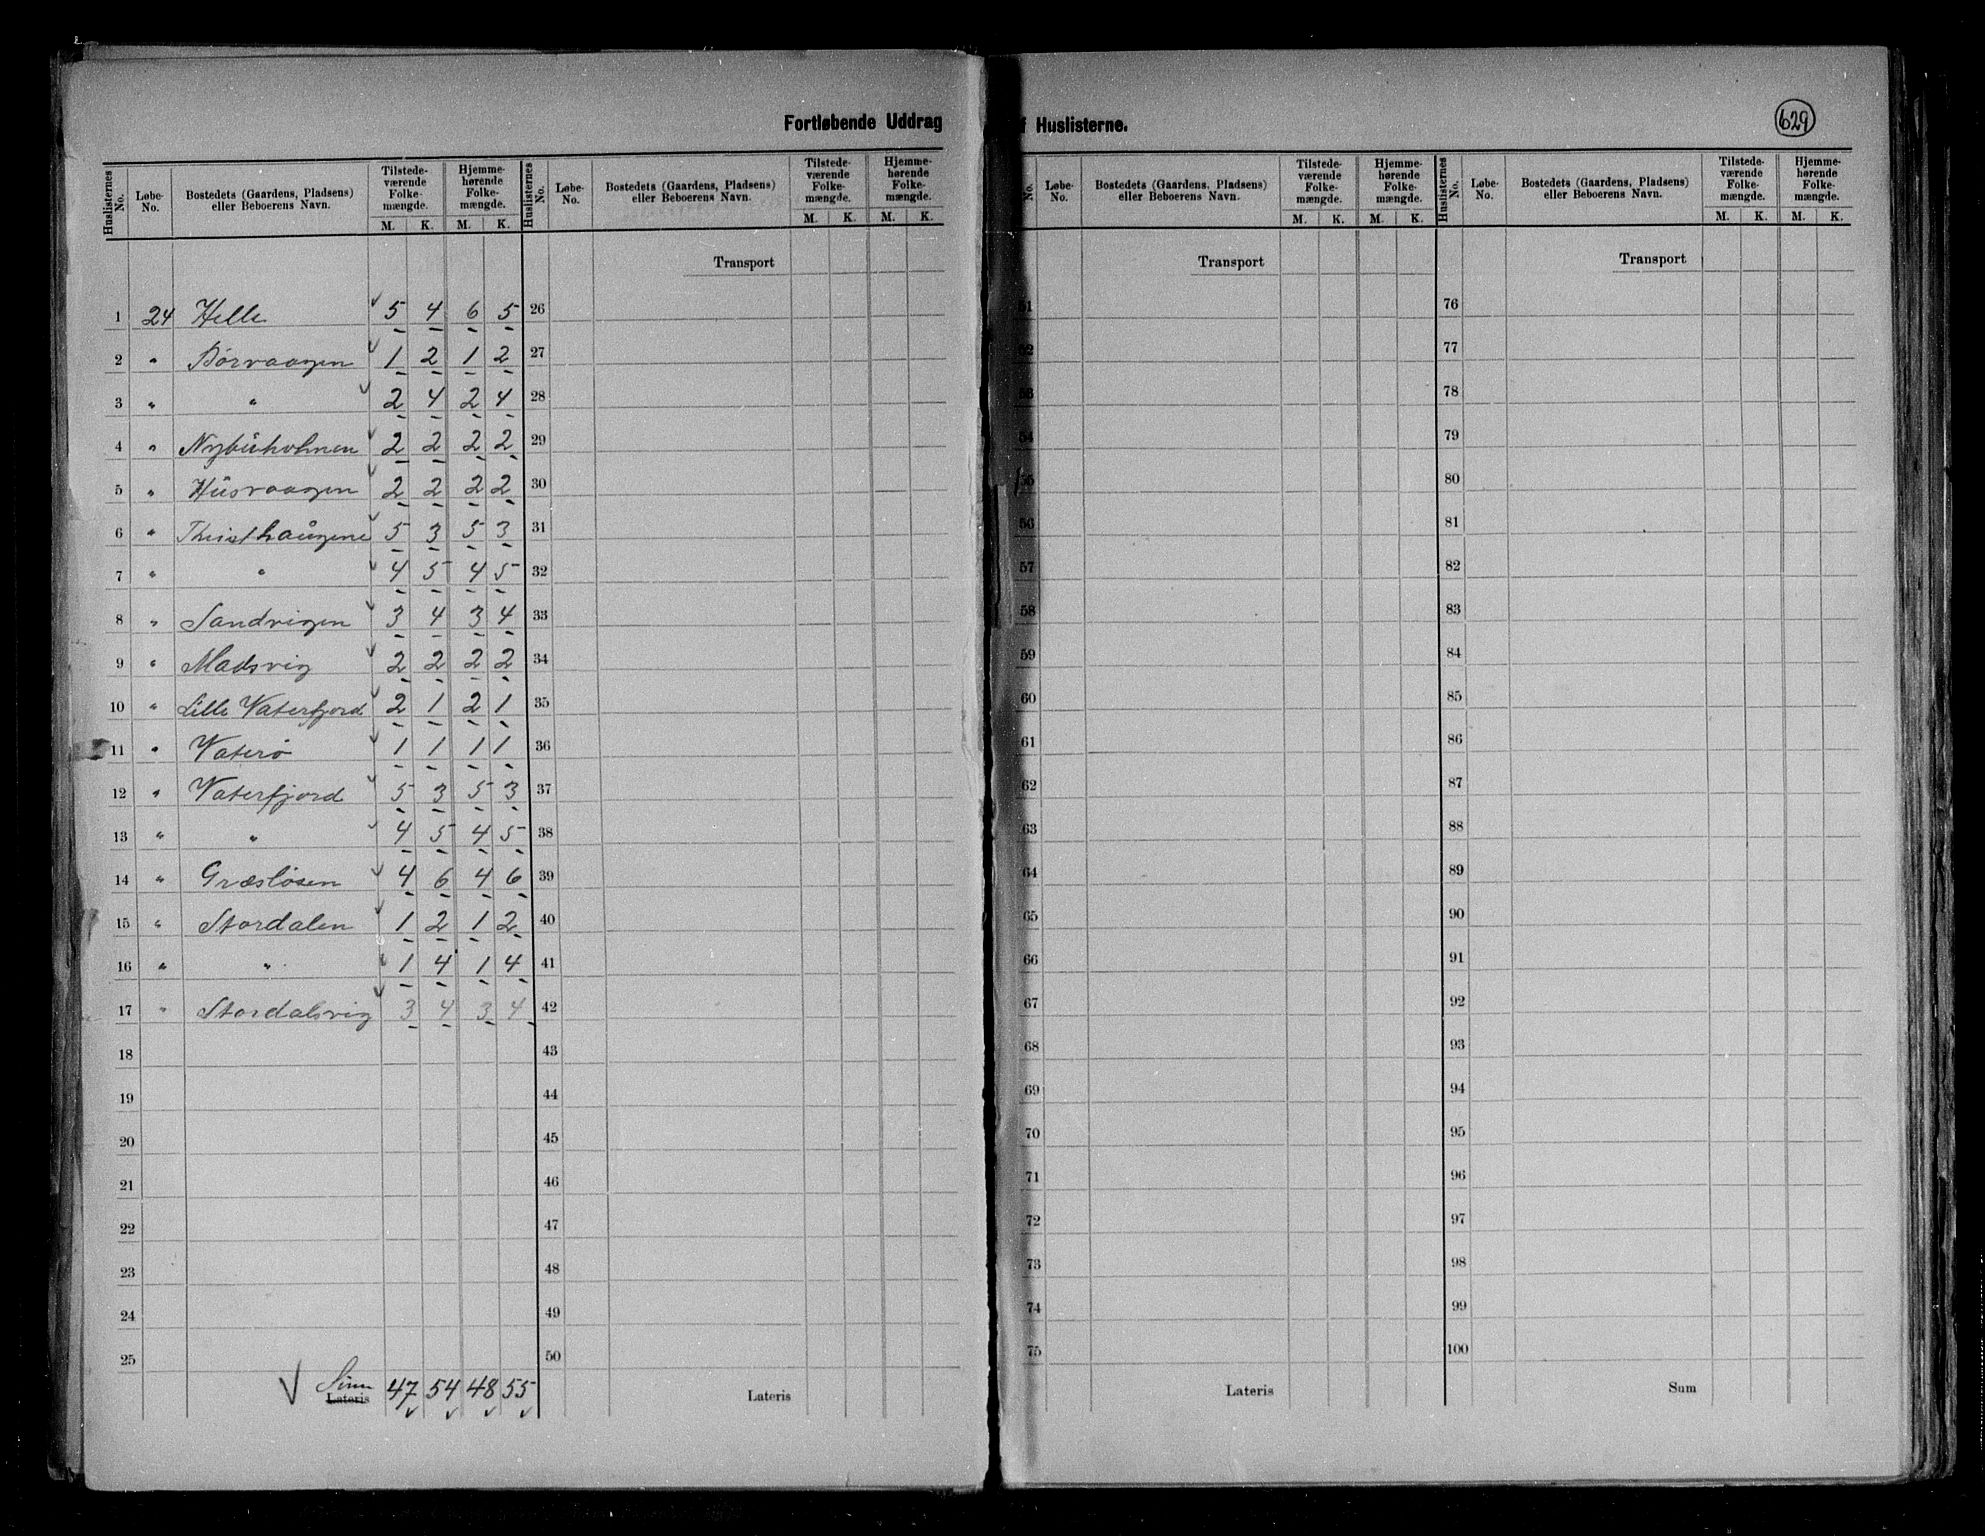 Fortløbende Uddrag
f Huslisterne.
629
Huslisternes No. Løbe-No. Bostedets (Gaardens, Pladsens) eller Beboerens Navn. Tilstedeværende Folkemængde. M. K. Hjemmehørende Folkemængde. M. K.
1 24 Helle 5 4 6 5
2 " Børvaagen 1 2 1 2
3 " " 2 4 2 4
4 " Nybuholmen 2 2 2 2
5 " Husvaagen 2 2 2 2
6 " 5 3 5 3
7 " " 4 5 4 5
8 " Sandvigen 3 4 3 4
9 " Madsvig 2 2 2 2
10 " Lille Vaterfjord 2 1 2 1
11 " Vaterø 1 1 1 1
12 " Vaterfjord 5 3 5 3
13 " " 4 5 4 5
14 " Græsløsen 4 6 4 6
15 " Stordalen 1 2 1 2
16 " " 1 4 1 4
17 " Stordalsvig 3 4 3 4
18
19
20
21
22
23
24
25
Sum Lateris 47 54 48 55
Huslisternes No. Løbe-No. Bostedets (Gaardens, Pladsens) eller Beboerens Navn. Tilstedeværende Folkemængde. M. K. Hjemmehørende Folkemængde. M. K.
Transport
26
27
28
29
30
31
32
33
34
35
36
37
38
39
40
41
42
43
44
45
46
47
48
49
50
Lateris
No. Løbe-No. Bostedets (Gaardens, Pladsens) eller Beboerens Navn. Tilstedeværende Folkemængde. M. K. Hjemmehørende Folkemængde. M. K.
Transport
51
52
53
54
55
56
57
58
59
60
61
62
63
64
65
66
67
68
69
70
71
72
73
74
75
Lateris
Huslisternes No. Løbe-No. Bostedets (Gaardens, Pladsens) eller Beboerens Navn. Tilstedeværende Folkemængde. M. K. Hjemmehørende Folkemængde. M. K.
Transport
76
77
78
79
80
81
82
83
84
85
86
87
88
89
90
91
92
93
94
95
96
97
98
99
100
Sum